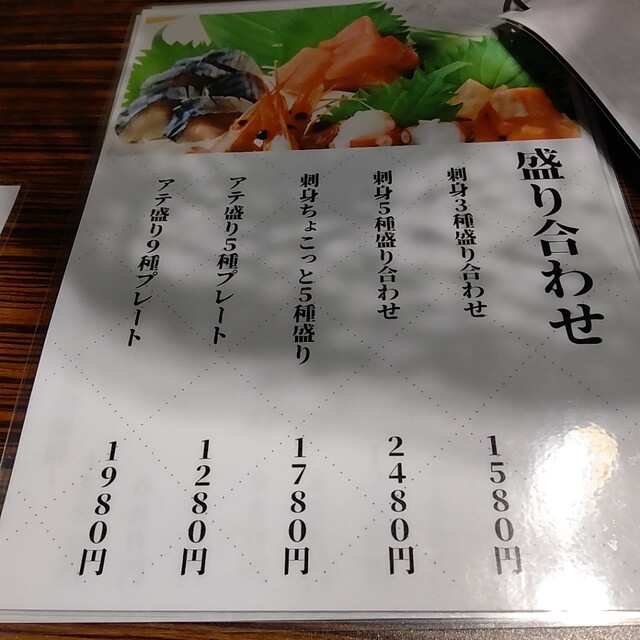 盛り合わせ
刺身3種盛り合わせ 1580円
刺身5種盛り合わせ 2480円
刺身ちょこっと5種盛り 1780円
アテ盛り5種プレート 1280円
アテ盛り9種プレート 1980円